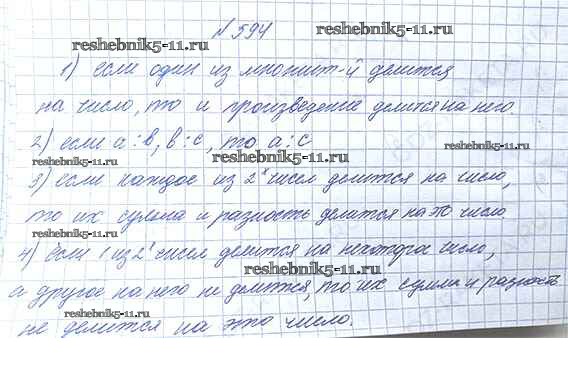 № 594
reshebnik5-11.ru
reshebnik5-11.ru
1) если один из множит-й делится
на число, то и произведение делится на него.
reshebnik5-11.ru
2) если а ⋮ в, в ⋮ с, то а ⋮ с
reshebnik5-11.ru
reshebnik5-11.ru
reshebnik5-11.ru
3) если каждое из 2ˣ чисел делится на число,
то их сумма и разность делятся на это число
4) если 1 из 2ˣ чисел делится на некоторое число,
reshebnik5-11.ru
а другое на него не делится, то их сумма и разность
reshebnik5-11.ru
не делится на это число.